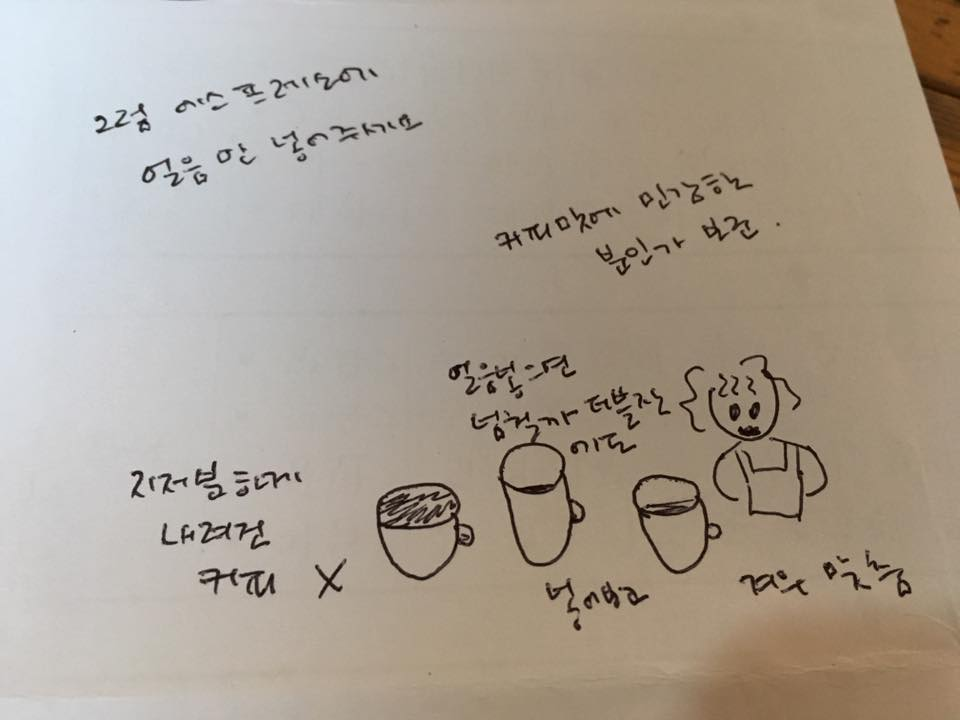 그럼 에스프레소에
얼음만 넣어주세요
커피맛에 민감한
분인가 보군.
얼음넣으면
넘칠까 더블잔
에도
지저분하게
내려진
커피 X
넣어보고
겨우 맞춤